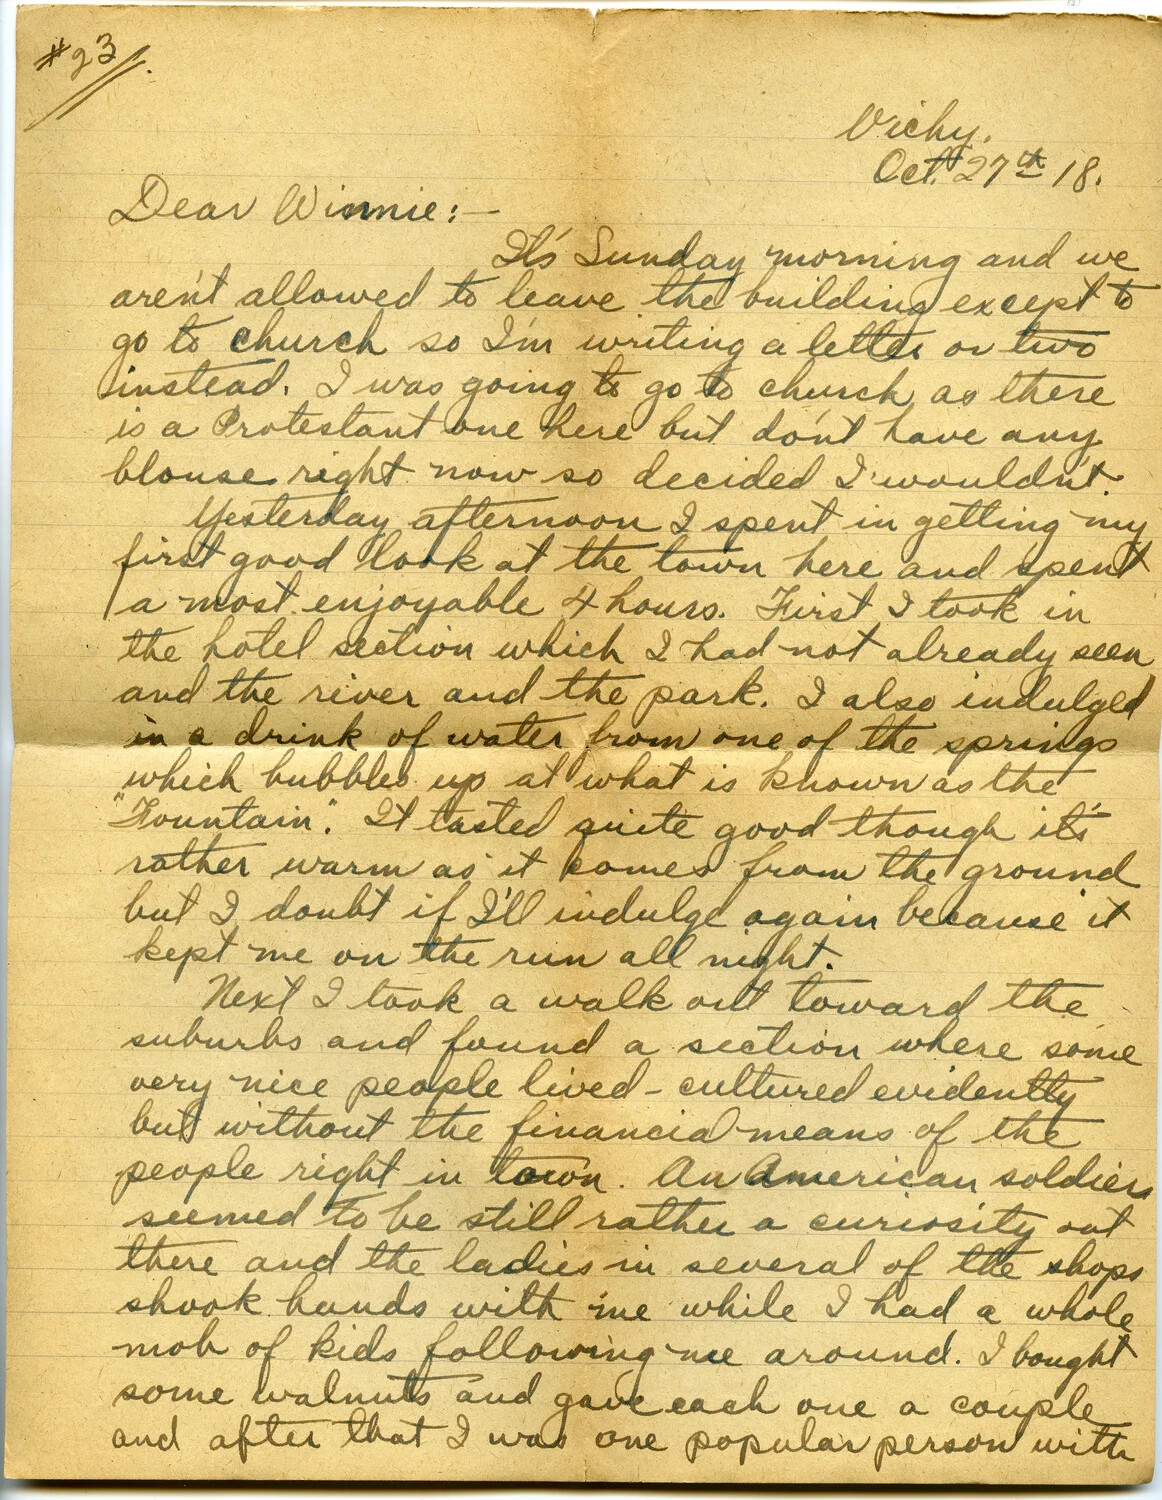 #23
Vichy.
Oct. 27th 18.
Dear Winnie:-
It's Sunday morning and we
aren't allowed to leave the building except to
go to church so I'm writing a letter or two
instead. I was going to go to church as there
is a Protestant one here but don't have any
blouse right now so decided I wouldn't.
Yesterday afternoon I spent in getting my
first good look at the town here and spent
a most enjoyable 4 hours. First I took in
the hotel section which I had not already seen
and the river and the park. I also indulged
in a drink of water from one of the springs
which bubbles up at what is known as the
"Fountain". It tasted quite good though it's
rather warm as it comes from the ground
but I doubt if I'll indulge again because it
kept me on the run all night.
Next I took a walk out toward the
suburbs and found a section where some
very nice people lived - cultured evidently
but without the financial means of the
people right in town. An American soldier
seemed to be still rather a curiosity out
there and the ladies in several of the shops
shook hands with me while I had a whole
mob of kids following me around. I bought
some walnuts and gave each one a couple
and after that I was one popular person with